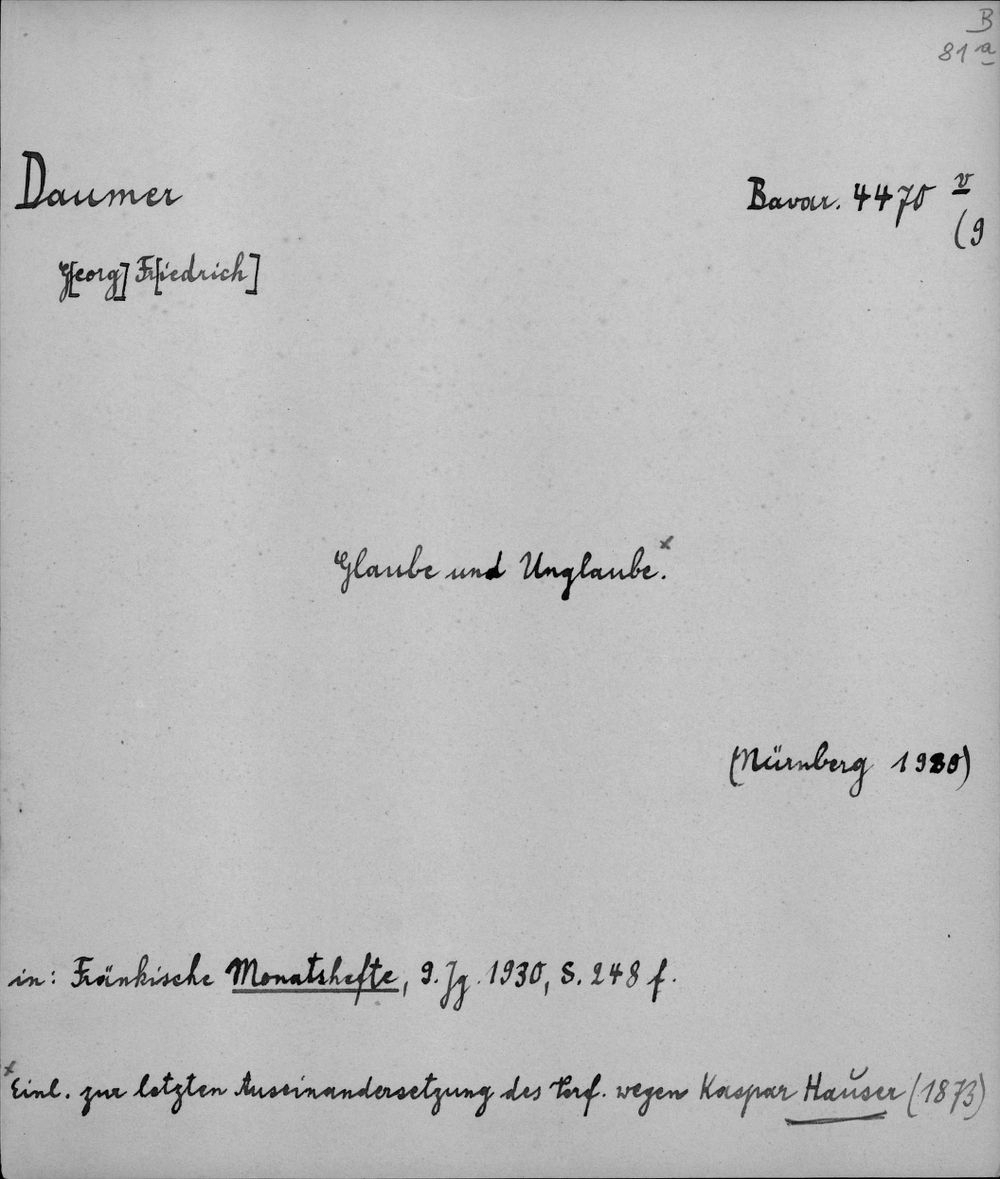 B
81 a
Daumer
Bavar. 4470 v
(9
G[eorg] Fr[iedrich]
Glaube und Unglaube.x
(Nürnberg 1930)
in: Fränkische Monatshefte, 9. Jg. 1930, S. 248 f.
x Einl. zur letzten Auseinandersetzung des Verf. wegen Kaspar Hauser (1873)